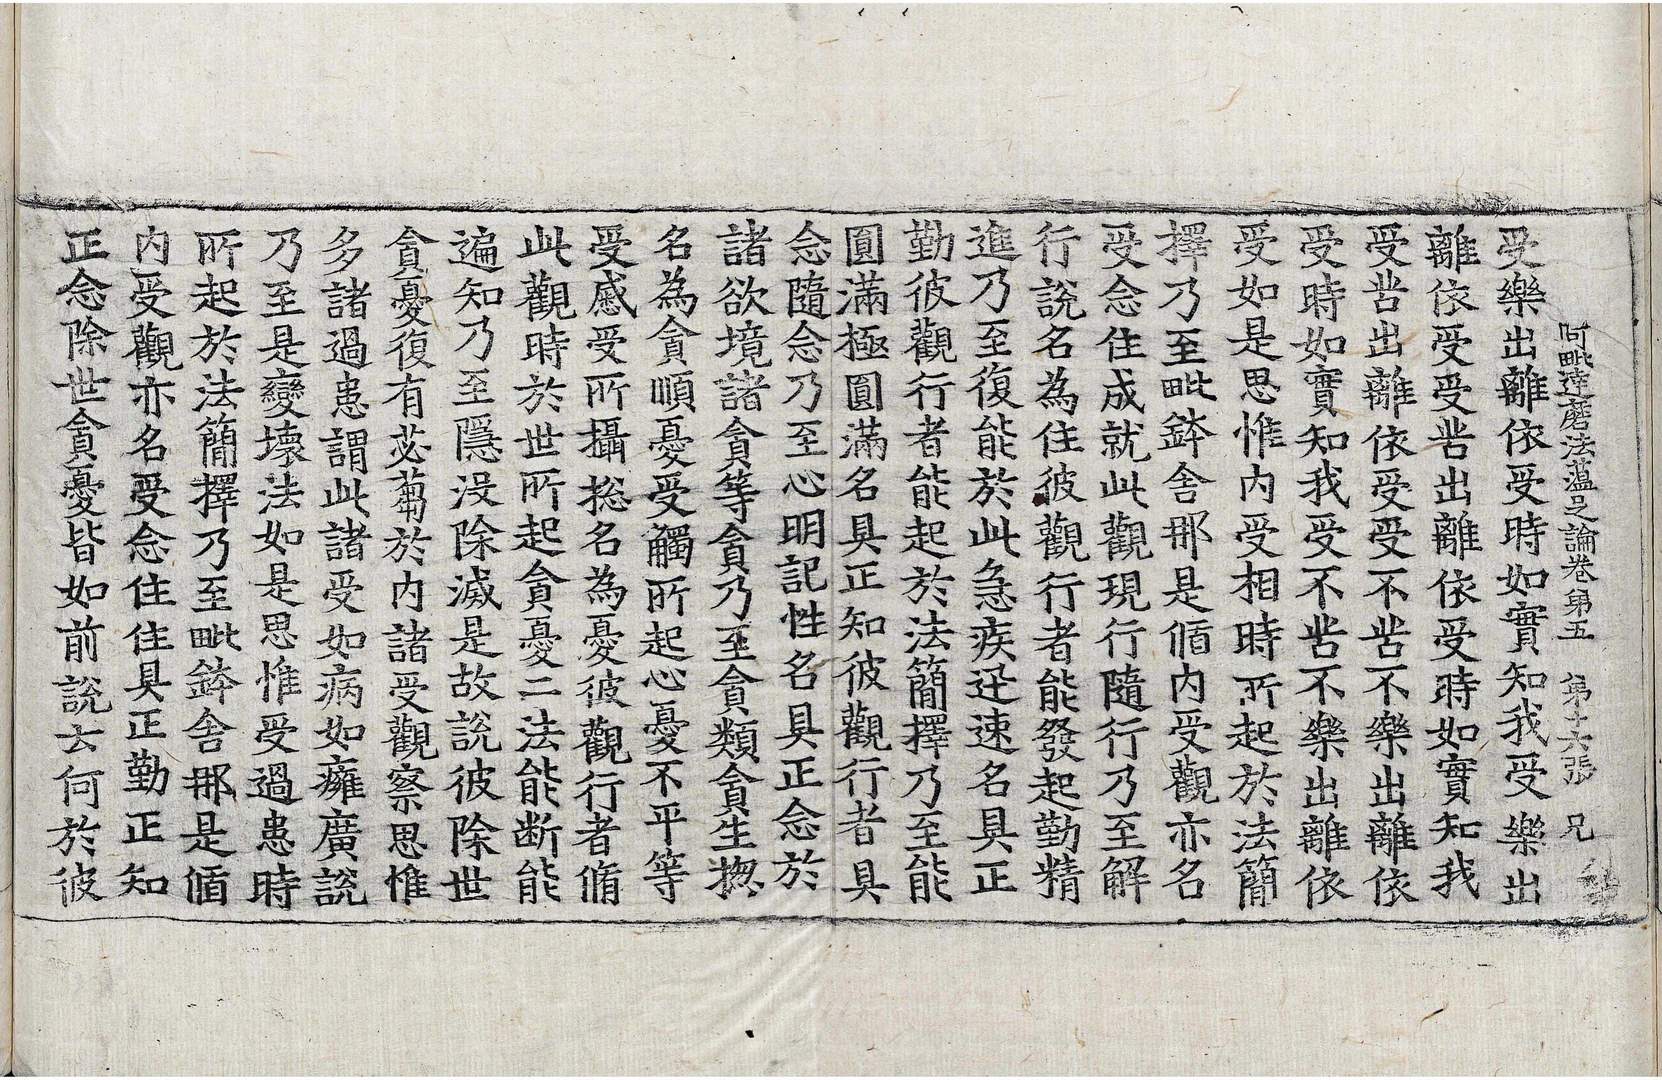 阿毗達磨法蘊足論卷第五 第十六張 兄
受樂出離依受時如實知我受樂出
離依受受苦出離依受時如實知我
受苦出離依受受不苦不樂出離依
受時如實知我受不苦不樂出離依
受如是思惟內受相時所起於法簡
擇乃至毗鉢舍那是循內受觀亦名
受念住成就此觀現行隨行乃至解
行說名為住彼觀行者能發起勤精
進乃至復能於此急疾迅速名具正
勤彼觀行者能起於法簡擇乃至能
圓滿極圓滿名具正知彼觀行者具
念隨念乃至心明記性名具正念於
諸欲境諸貪等貪乃至貪類貪生揔
名為貪順憂受觸所起心憂不平等
受慼受所攝捴名為憂彼觀行者脩
此觀時於世所起貪憂二法能断能
遍知乃至隱沒除滅是故說彼除世
貪憂復有苾蒭於內諸受觀察思惟
多諸過患謂此諸受如病如癰廣說
乃至是變壞法如是思惟受過患時
所起於法簡擇乃至毗鉢舍那是循
內受觀亦名受念住住具正勤正知
正念除世貪憂皆如前說云何於彼